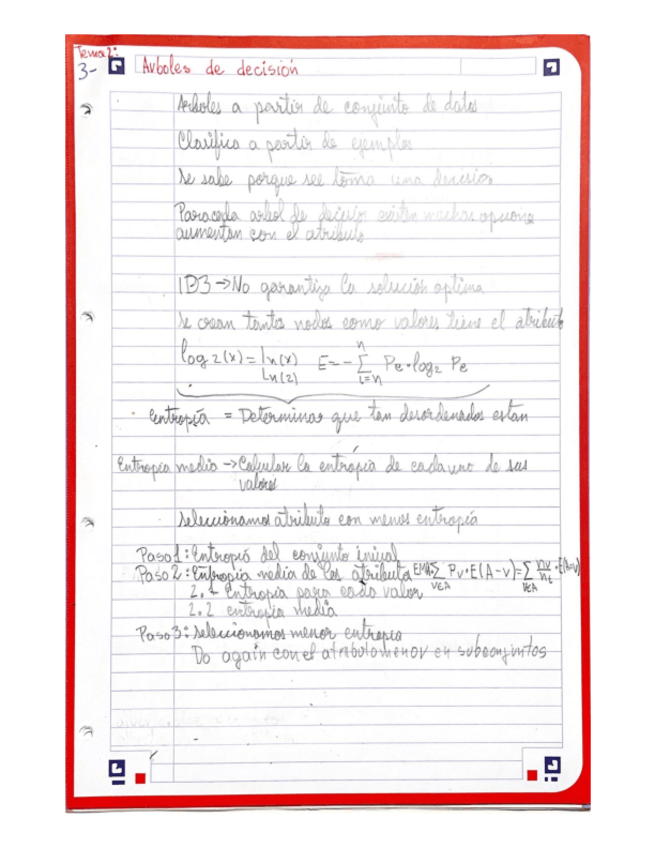 Tema 2:
3- Arboles de decisión
Arboles a partir de conjunto de datos
Clasifica a partir de ejemplos
Se sabe porque see toma una decision
Para cada arbol de decision existen muchas opciones
aumentan con el atributo
ID3 → No garantiza la solución optima
Se crean tantos nodos como valores tiene el atributo
log2(x) = ln(x)/Ln(2) E = - Σ i=n n Pe · log2 Pe
Entropía = Determinar que tan desordenados estan
Entropia media → Calcular la entropia de cada uno de sus
valores
Seleccionamos atributo con menos entropía
Paso 1: Entropia del conjunto inicial
Paso 2: Entropia media de los atributos EM = Σ v∈A Pv · E(A-v) = Σ v∈A nv/nt · E(A=v)
2.1 Entropia para cada valor
2.2 entropia media
Paso 3: Seleccionamos menor entropia
Do again con el atributo menor en subconjuntos